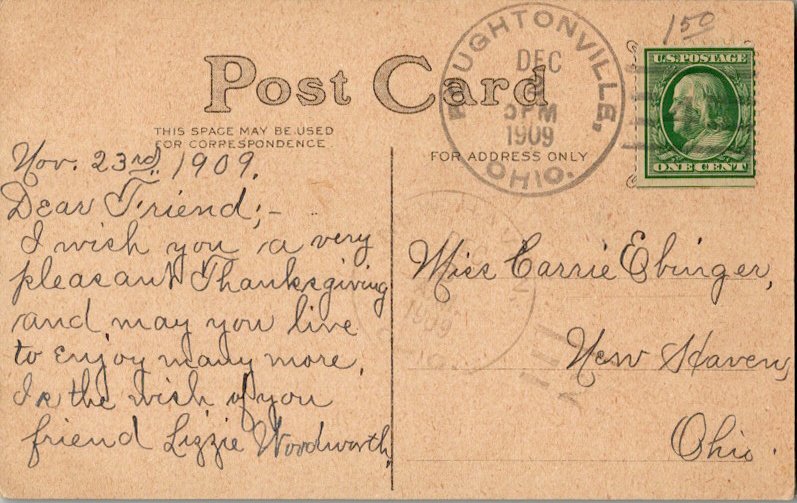 150
U.S. POSTAGE
ONE CENT
Post Card
THIS SPACE MAY BE USED
FOR CORRESPONDENCE.
FOR ADDRESS ONLY
BOUGHTONVILLE,
DEC
3PM
1909
OHIO.
Nov. 23rd, 1909.
Dear Friend;-
I wish you a very
pleasant Thanksgiving
and may you live
to enjoy many more.
Is the wish of you
friend Lizzie Woodworth,
1909
Miss Carrie Ebinger,
New Haven,
Ohio.